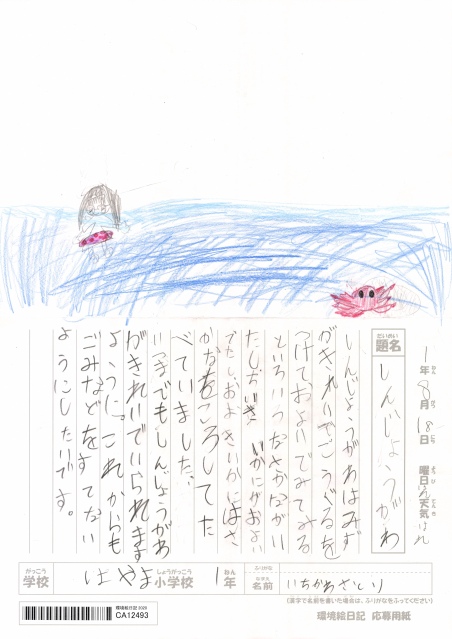 1年8月18日 曜日 天気はれ
だいめい
題名
しんじょうがわ
しんじょうがわはみず
がきれいでごうぐるを
つけておよいでみてみる
といろいろなさかながい
たしおいき いかにがおよい
でたしおよきいかにはさ
かなをころしてた
べていました。
いつまでもしんじょうがわ
がきれいでいられます
ように。これからも
ごみなどをすてない
ようにしたいです。
がっこう しょうがっこう ねん ふりがな
学校 はやま小学校 1年
なまえ
名前 いちかわさとり
(漢字で名前を書いた場合は、ふりがなをふってください)
環境絵日記 2020
CA12493
環境絵日記 応募用紙